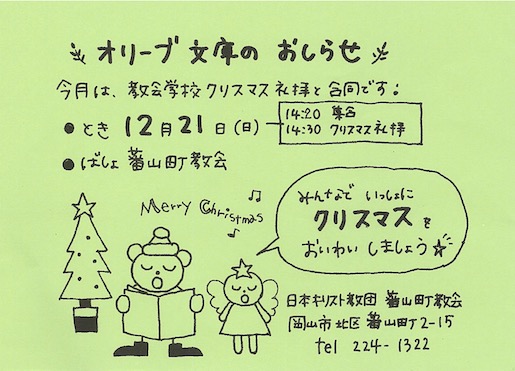 オリーブ文庫の おしらせ
今月は、教会学校クリスマス礼拝と合同です！
● とき 12月21日(日)
14:20 集合
14:30 クリスマス礼拝
● ばしょ 蕃山町教会
Merry Christmas
みんなで いっしょに
クリスマスを
おいわい しましょう☆
日本キリスト教団 蕃山町教会
岡山市北区 蕃山町2-15
tel 224-1322